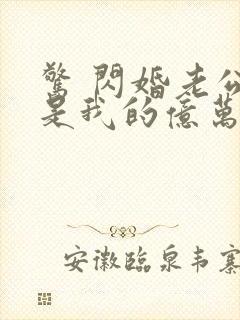 驚 閃婚老公
是我的億萬
安徽臨泉韦寨